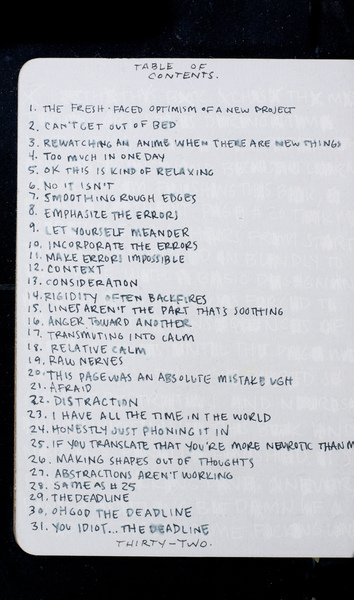 TABLE OF
CONTENTS.
1. THE FRESH-FACED OPTIMISM OF A NEW PROJECT
2. CAN'T GET OUT OF BED
3. REWATCHING AN ANIME WHEN THERE ARE NEW THINGS
4. TOO MUCH IN ONE DAY
5. OK THIS IS KIND OF RELAXING
6. NO IT ISN'T
7. SMOOTHING ROUGH EDGES
8. EMPHASIZE THE ERRORS
9. LET YOURSELF MEANDER
10. INCORPORATE THE ERRORS
11. MAKE ERRORS IMPOSSIBLE
12. CONTEXT
13. CONSIDERATION
14. RIGIDITY OFTEN BACKFIRES
15. LINES AREN'T THE PART THAT'S SOOTHING
16. ANGER TOWARD ANOTHER
17. TRANSMUTING INTO CALM
18. RELATIVE CALM
19. RAW NERVES
20. THIS PAGE WAS AN ABSOLUTE MISTAKE UGH
21. AFRAID
22. DISTRACTION
23. I HAVE ALL THE TIME IN THE WORLD
24. HONESTLY JUST PHONING IT IN
25. IF YOU TRANSLATE THAT YOU'RE MORE NEUROTIC THAN M
26. MAKING SHAPES OUT OF THOUGHTS
27. ABSTRACTIONS AREN'T WORKING
28. SAME AS #25
29. THE DEADLINE
30. OH GOD THE DEADLINE
31. YOU IDIOT... THE DEADLINE
THIRTY-TWO.